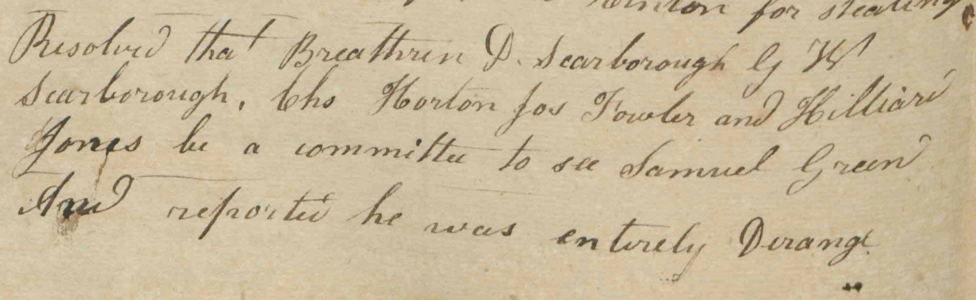 for stealing
Resolved that Breathren D. Scarborough G W
Scarborough, Chs Horton Jos Fowler and Hilliard
Jones be a committee to see Samuel Green
And reported he was entirely Derangd